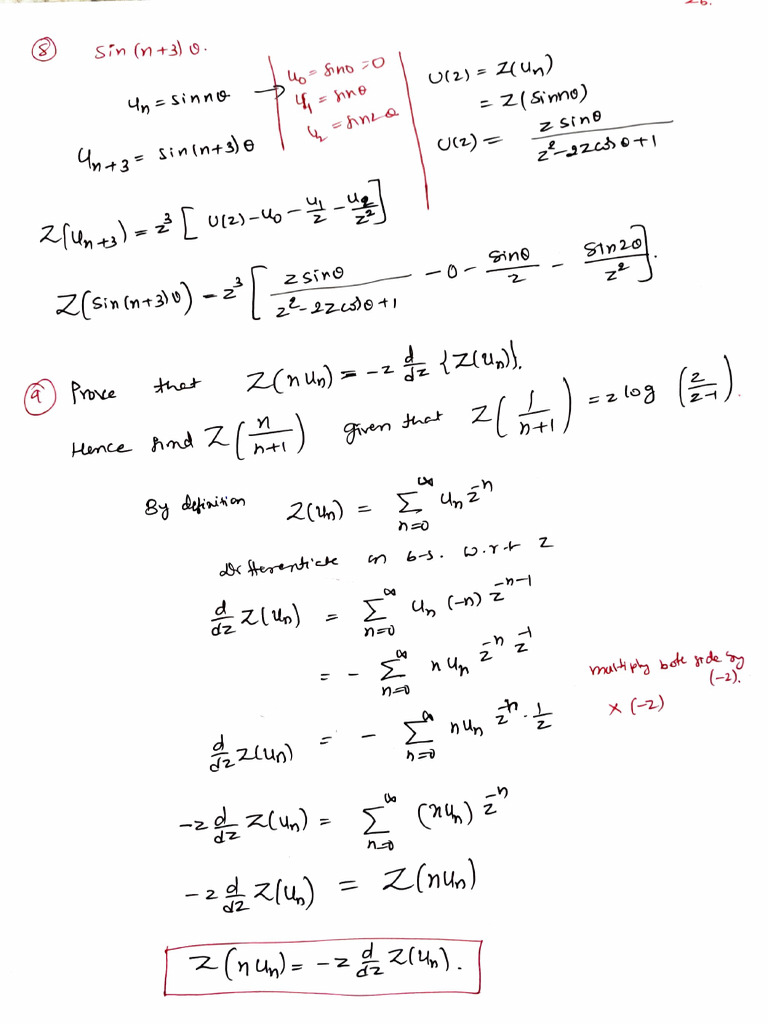 26.
⑧ Sin (n+3) θ.
uₙ = sin nθ → u₀ = sin 0 = 0
u₁ = sin θ
u₂ = sin 2θ
U(z) = Z(uₙ)
= Z(sin nθ)
U(z) = z sinθ / (z² - 2z cosθ + 1)
uₙ₊₃ = sin(n+3)θ
Z(uₙ₊₃) = z³ [ U(z) - u₀ - u₁/z - u₂/z² ]
Z(sin(n+3)θ) = z³ [ z sinθ / (z² - 2z cosθ + 1) - 0 - sinθ/z - sin2θ/z² ].
⑨ Prove that Z(n uₙ) = -z d/dz {Z(uₙ)}.
Hence find Z(n/(n+1)) given that Z(1/(n+1)) = z log (z/(z-1)).
By definition Z(uₙ) = ∑ₙ₌₀^∞ uₙ z⁻ⁿ
Differentiate on b-s. w.r.t z
d/dz Z(uₙ) = ∑ₙ₌₀^∞ uₙ (-n) z⁻ⁿ⁻¹
= - ∑ₙ₌₀^∞ n uₙ z⁻ⁿ z⁻¹
multiply both side by
(-z).
d/dz Z(uₙ) = - ∑ₙ₌₀^∞ n uₙ z⁻ⁿ · 1/z × (-z)
-z d/dz Z(uₙ) = ∑ₙ₌₀^∞ (n uₙ) z⁻ⁿ
-z d/dz Z(uₙ) = Z(n uₙ)
Z(n uₙ) = -z d/dz Z(uₙ).